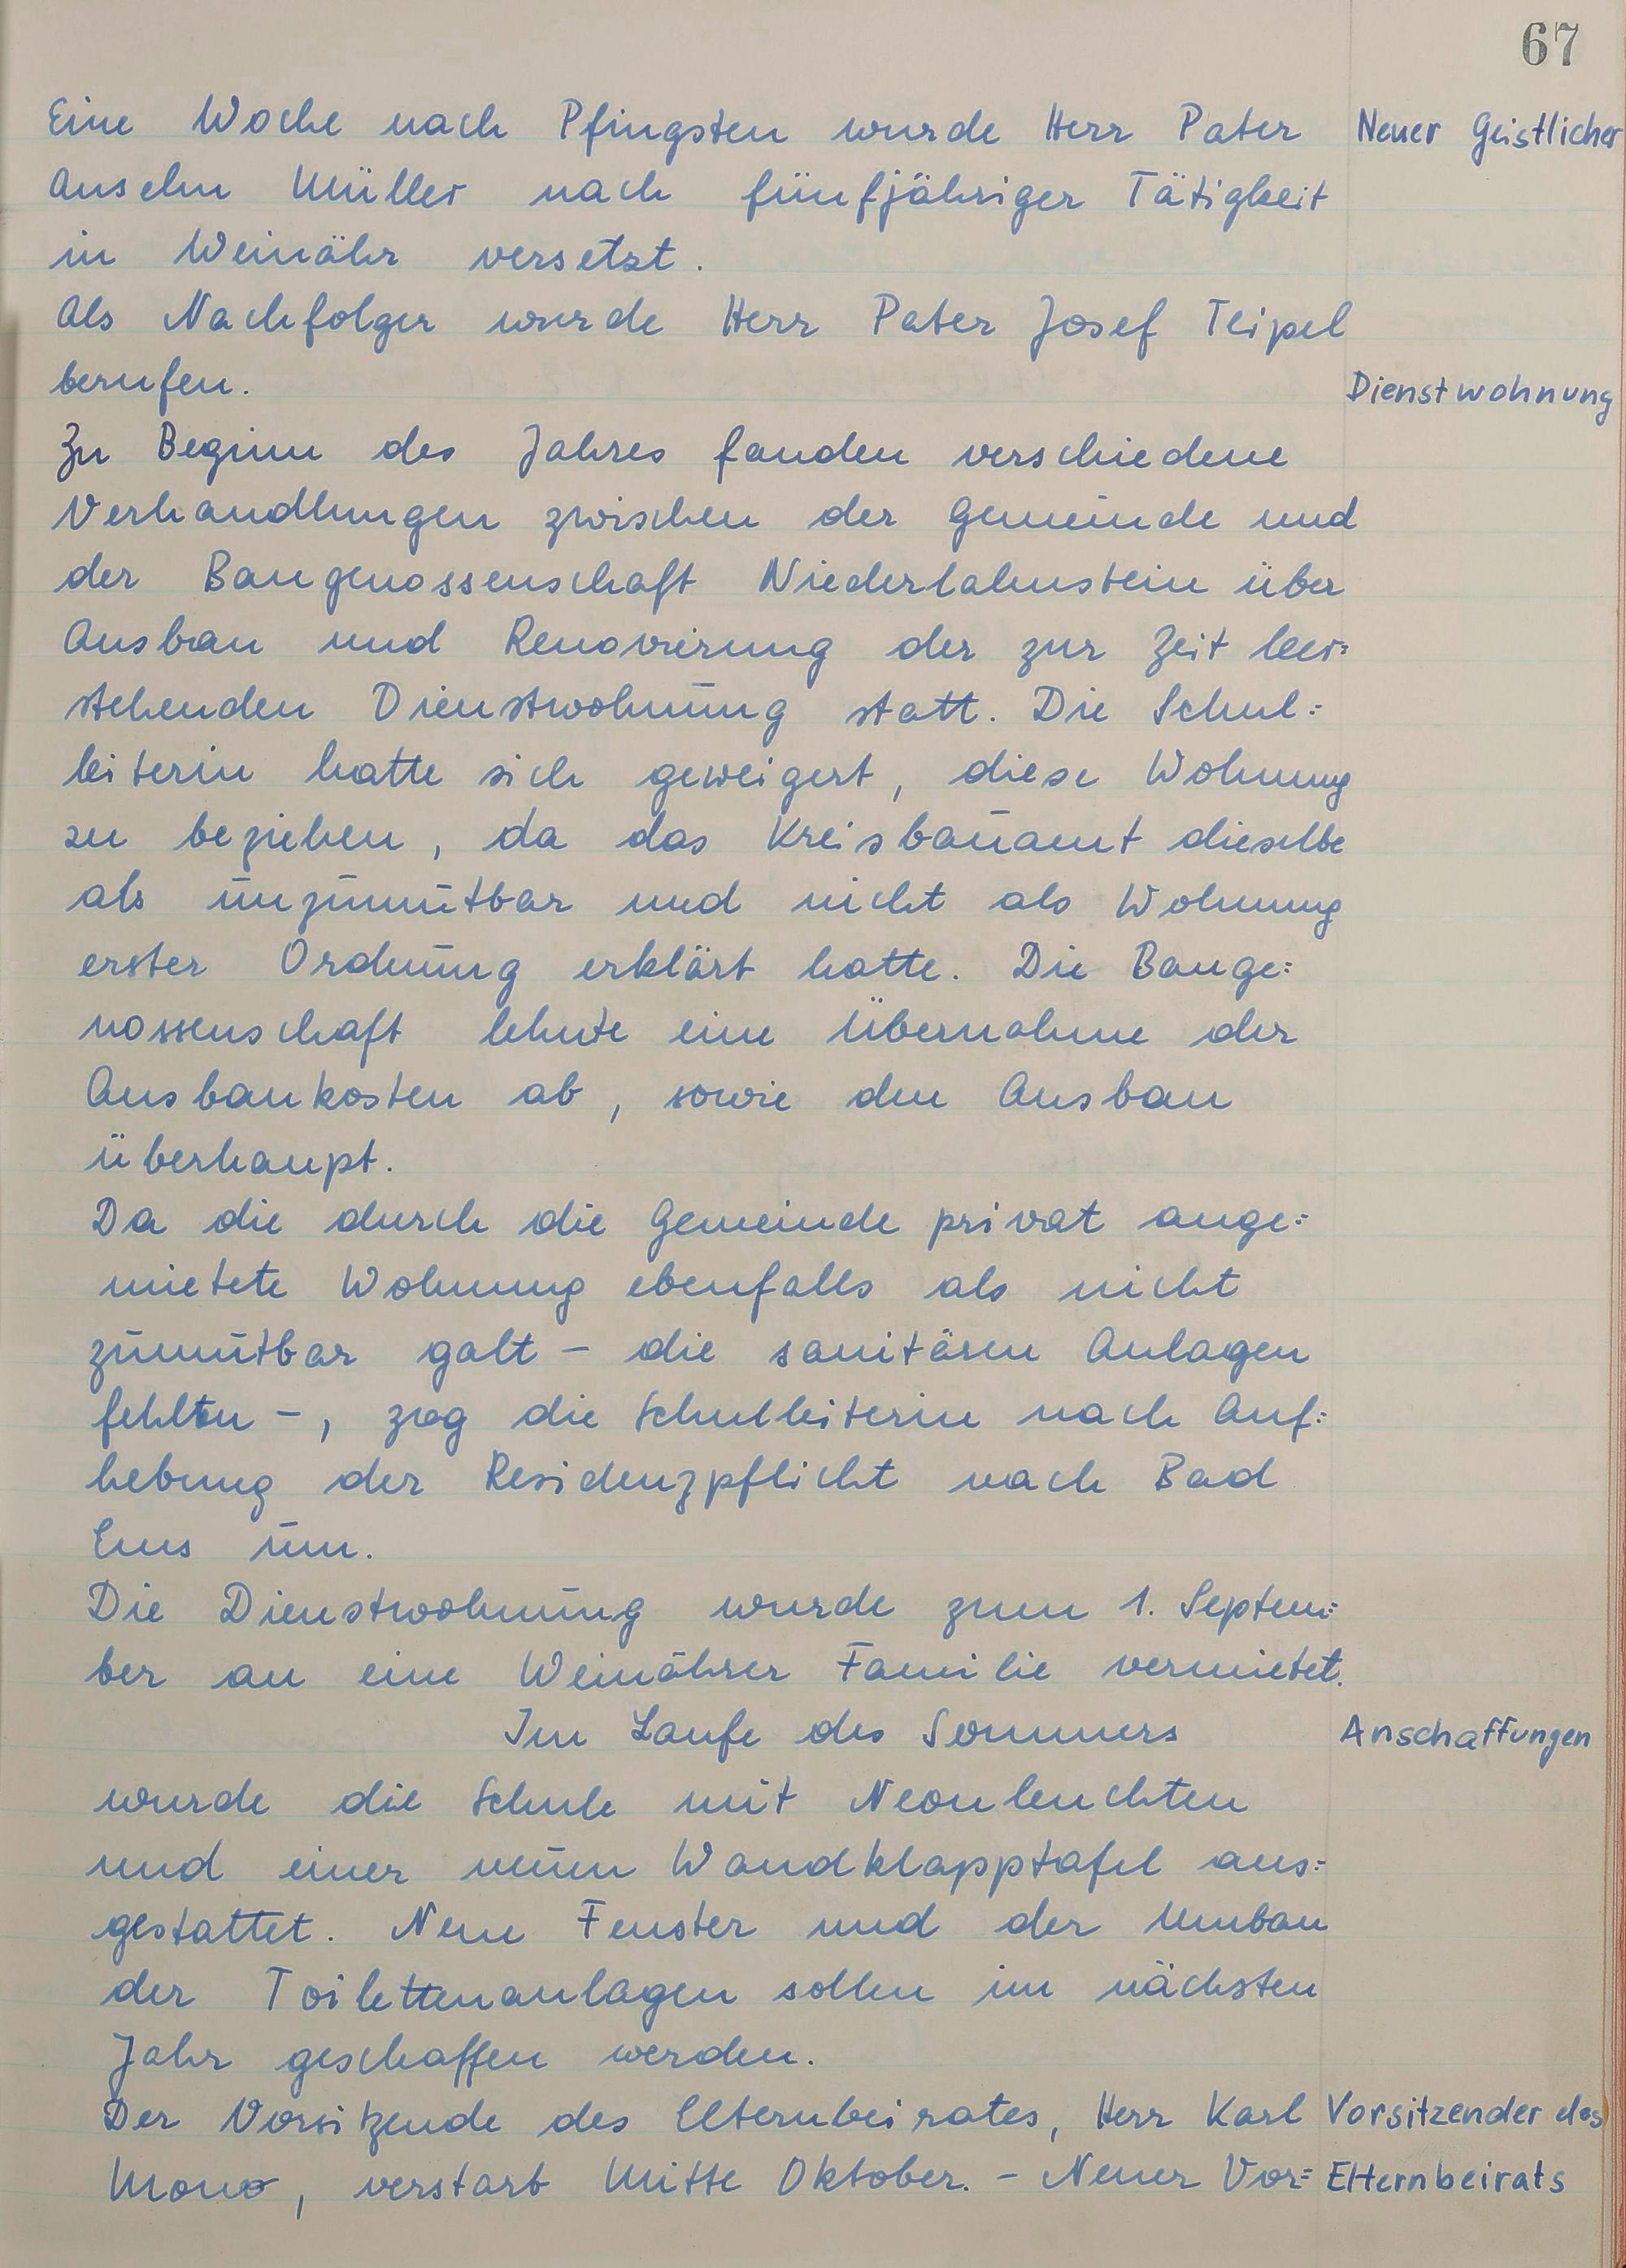 67
Eine Woche nach Pfingsten wurde Herr Pater
Neuer Geistlicher
Anselm Müller nach fünfjähriger Tätigkeit
in Weinähr versetzt.
Als Nachfolger wurde Herr Pater Josef Teipel
berufen.
Dienstwohnung
Zu Beginn des Jahres fanden verschiedene
Verhandlungen zwischen der Gemeinde und
der Baugenossenschaft Niederlahnstein über
Ausbau und Renovierung der zur Zeit leer=
stehenden Dienstwohnung statt. Die Schul=
leiterin hatte sich geweigert, diese Wohnung
zu beziehen, da das Kreisbauamt dieselbe
als unzumutbar und nicht als Wohnung
erster Ordnung erklärt hatte. Die Bauge=
nossenschaft lehnte eine Übernahme der
Ausbaukosten ab, sowie den Ausbau
überhaupt.
Da die durch die Gemeinde privat ange=
mietete Wohnung ebenfalls als nicht
zumutbar galt – die sanitären Anlagen
fehlten –, zog die Schulleiterin nach Auf=
hebung der Residenzpflicht nach Bad
Ems um.
Die Dienstwohnung wurde zum 1. Septem=
ber an eine Weinährer Familie vermietet.
Im Laufe des Sommers
Anschaffungen
wurde die Schule mit Neonleuchten
und einer neuen Wandklapptafel aus=
gestattet. Neue Fenster und der Umbau
der Toilettenanlagen sollen im nächsten
Jahr geschaffen werden.
Der Vorsitzende des Elternbeirates, Herr Karl
Vorsitzender des
Mono, verstarb Mitte Oktober. – Neuer Vor=
Elternbeirats